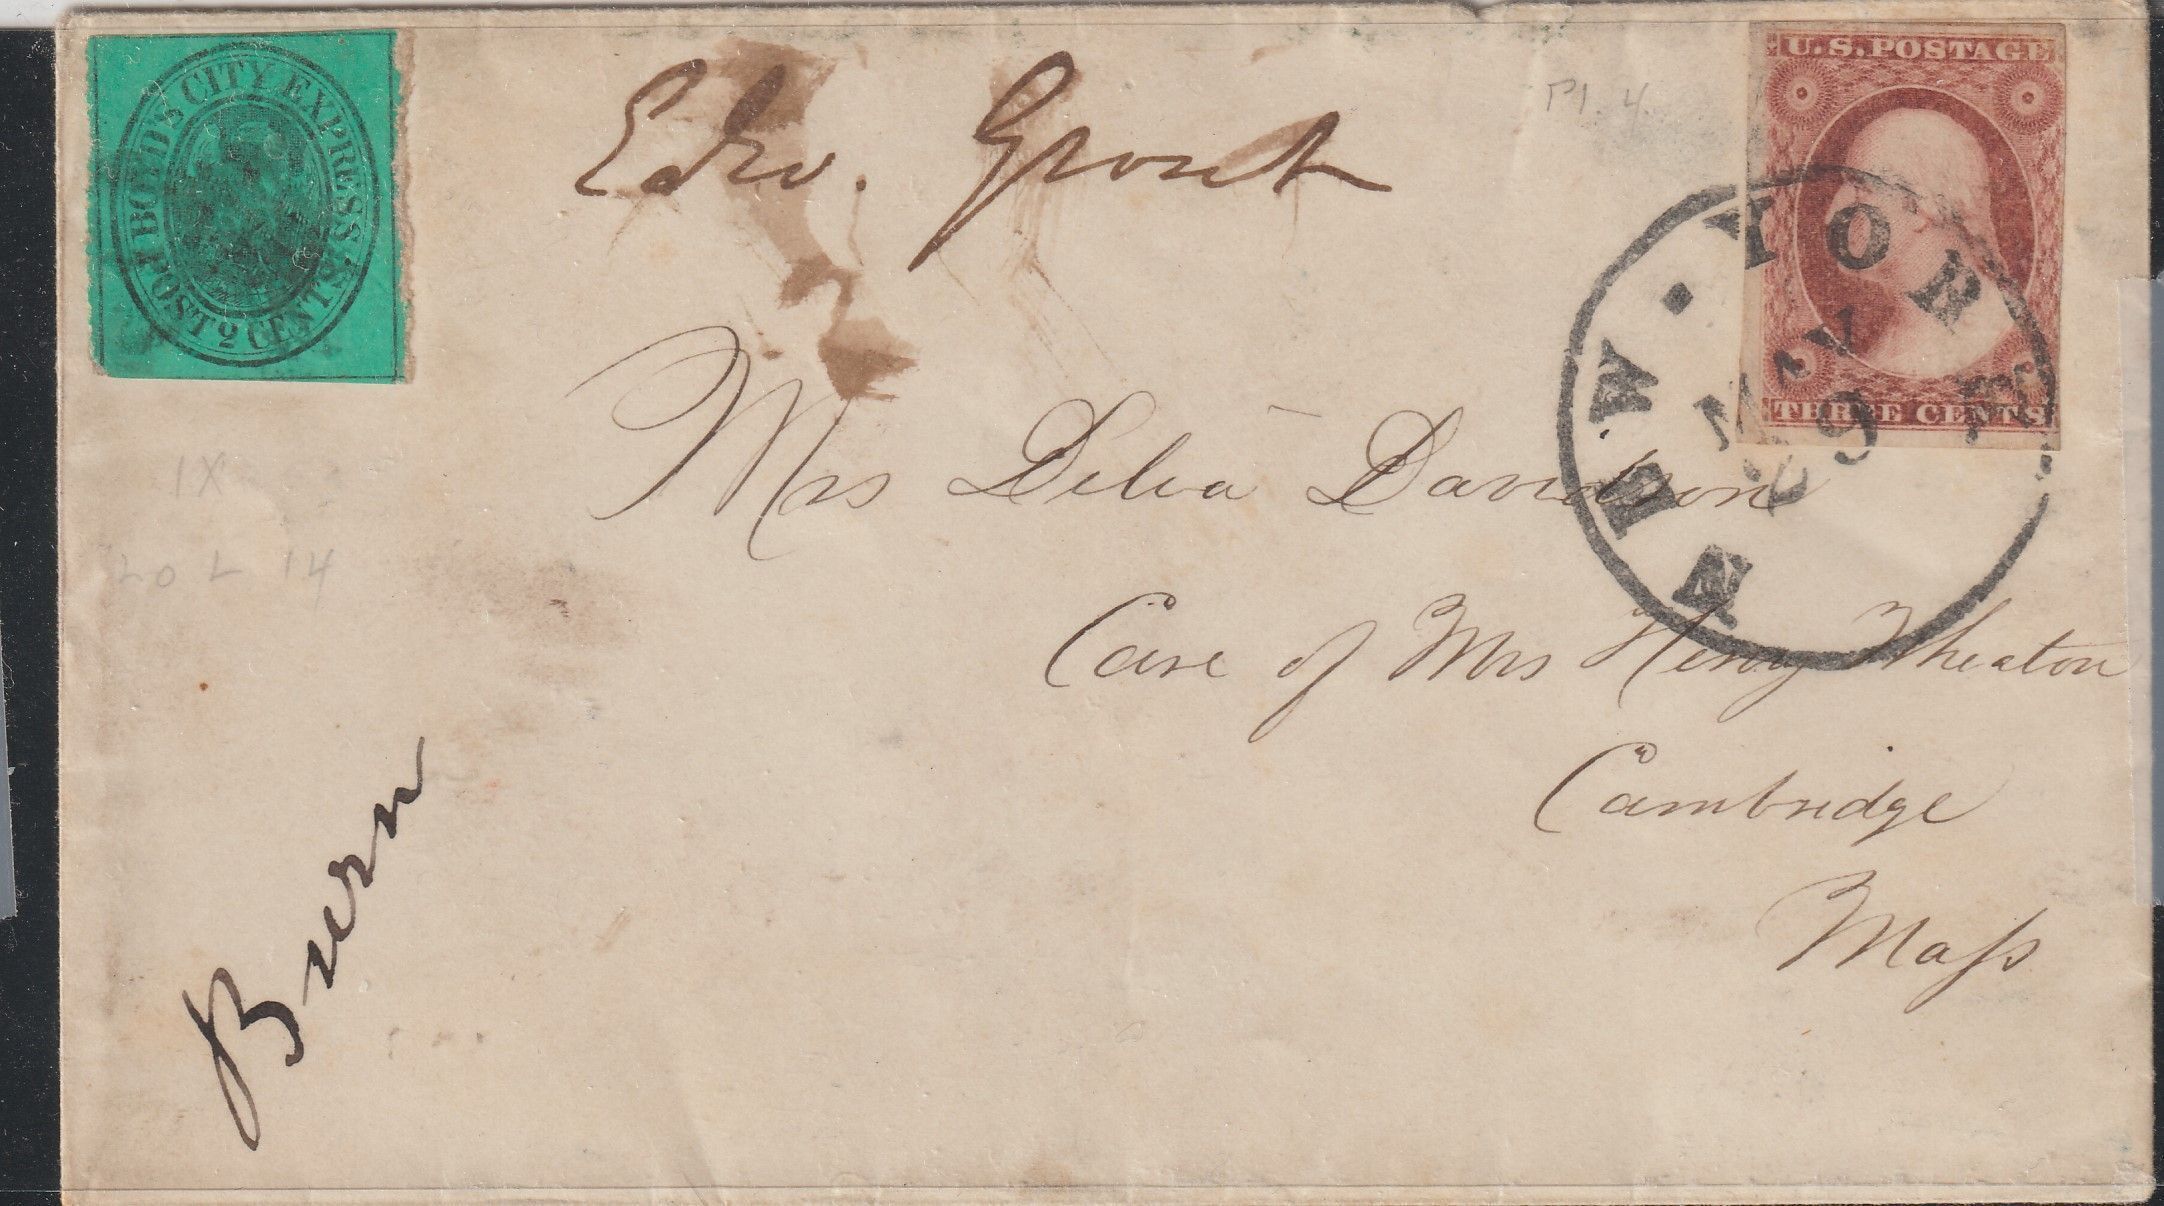 BOYD'S CITY EXPRESS.
POST 2 CENTS
Edw.
Pl. 4
U.S. POSTAGE
THREE CENTS
NEW · YORK
MAY
29
Mrs Delia Davidson
Care of Mrs Henry Wheaton
Cambridge
Mass
1X
20 L 14